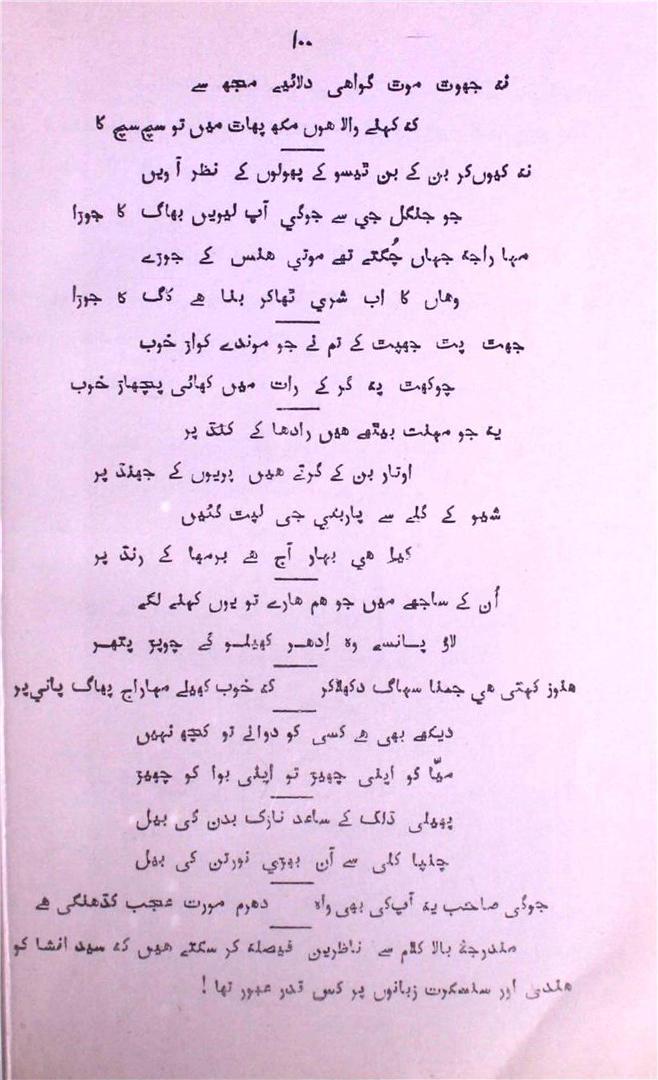 ۱۰۰
نہ جھوٹ موٹ گواھی دلائیے مجھ سے
کہ کہنے والا ھوں مکھ پھاٹ میں تو سچ سچ کا
نہ کیوں کر بن کے بن ٹیسو کے پھولوں کے نظر آویں
جو جنگل جي سے جوگي آپ لیویں بھاگ کا جوڑا
مہا راجہ جہاں چُگتے تھے موتي ھنس کے جوڑے
وھاں کا اب شري ٹھاکر بنا ھے ڈگ کا جوڑا
جھٹ پٹ جھپٹ کے تم نے جو موندے کواڑ خوب
چوکھٹ پہ گر کے رات میں کھائی پچھاڑ خوب
یہ جو مہنت بیٹھے ھیں رادھا کے کنڈ پر
اوتار بن کے گرتے ھیں پریوں کے جھنڈ پر
شیو کے گلے سے پاربتي جی لپٹ گئیں
کیا ھی بہار آج ھے برمھا کے رنڈ پر
اُن کے ساجھے میں جو ھم ھارے تو یوں کہنے لگے
لاؤ پانسے وہ اِدھر کھیلو گے چوپڑ پتھر
ھنوز کہتی ھي جمنا سہاگ دکھلاکر کہ خوب کھیلے مہاراج پھاگ پاني پر
دیکھے بھی ھے کسی کو دوانے تو کچھ نہیں
میّا کو اپنی چھیڑ تو اپنی بوا کو چھیڑ
پھیلی تلک کے ساعد نازک بدن کی بیل
چنپا کلی سے آن بھڑي نورتن کی بیل
جوگی صاحب یہ آپ کی بھی واہ دھرم مورت عجب کڈھنگی ھے
مندرجۂ بالا کلام سے ناظرین فیصلہ کر سکتے ھیں کہ سید انشا کو
ھندی اور سنسکرت زبانوں پر کس قدر عبور تھا !